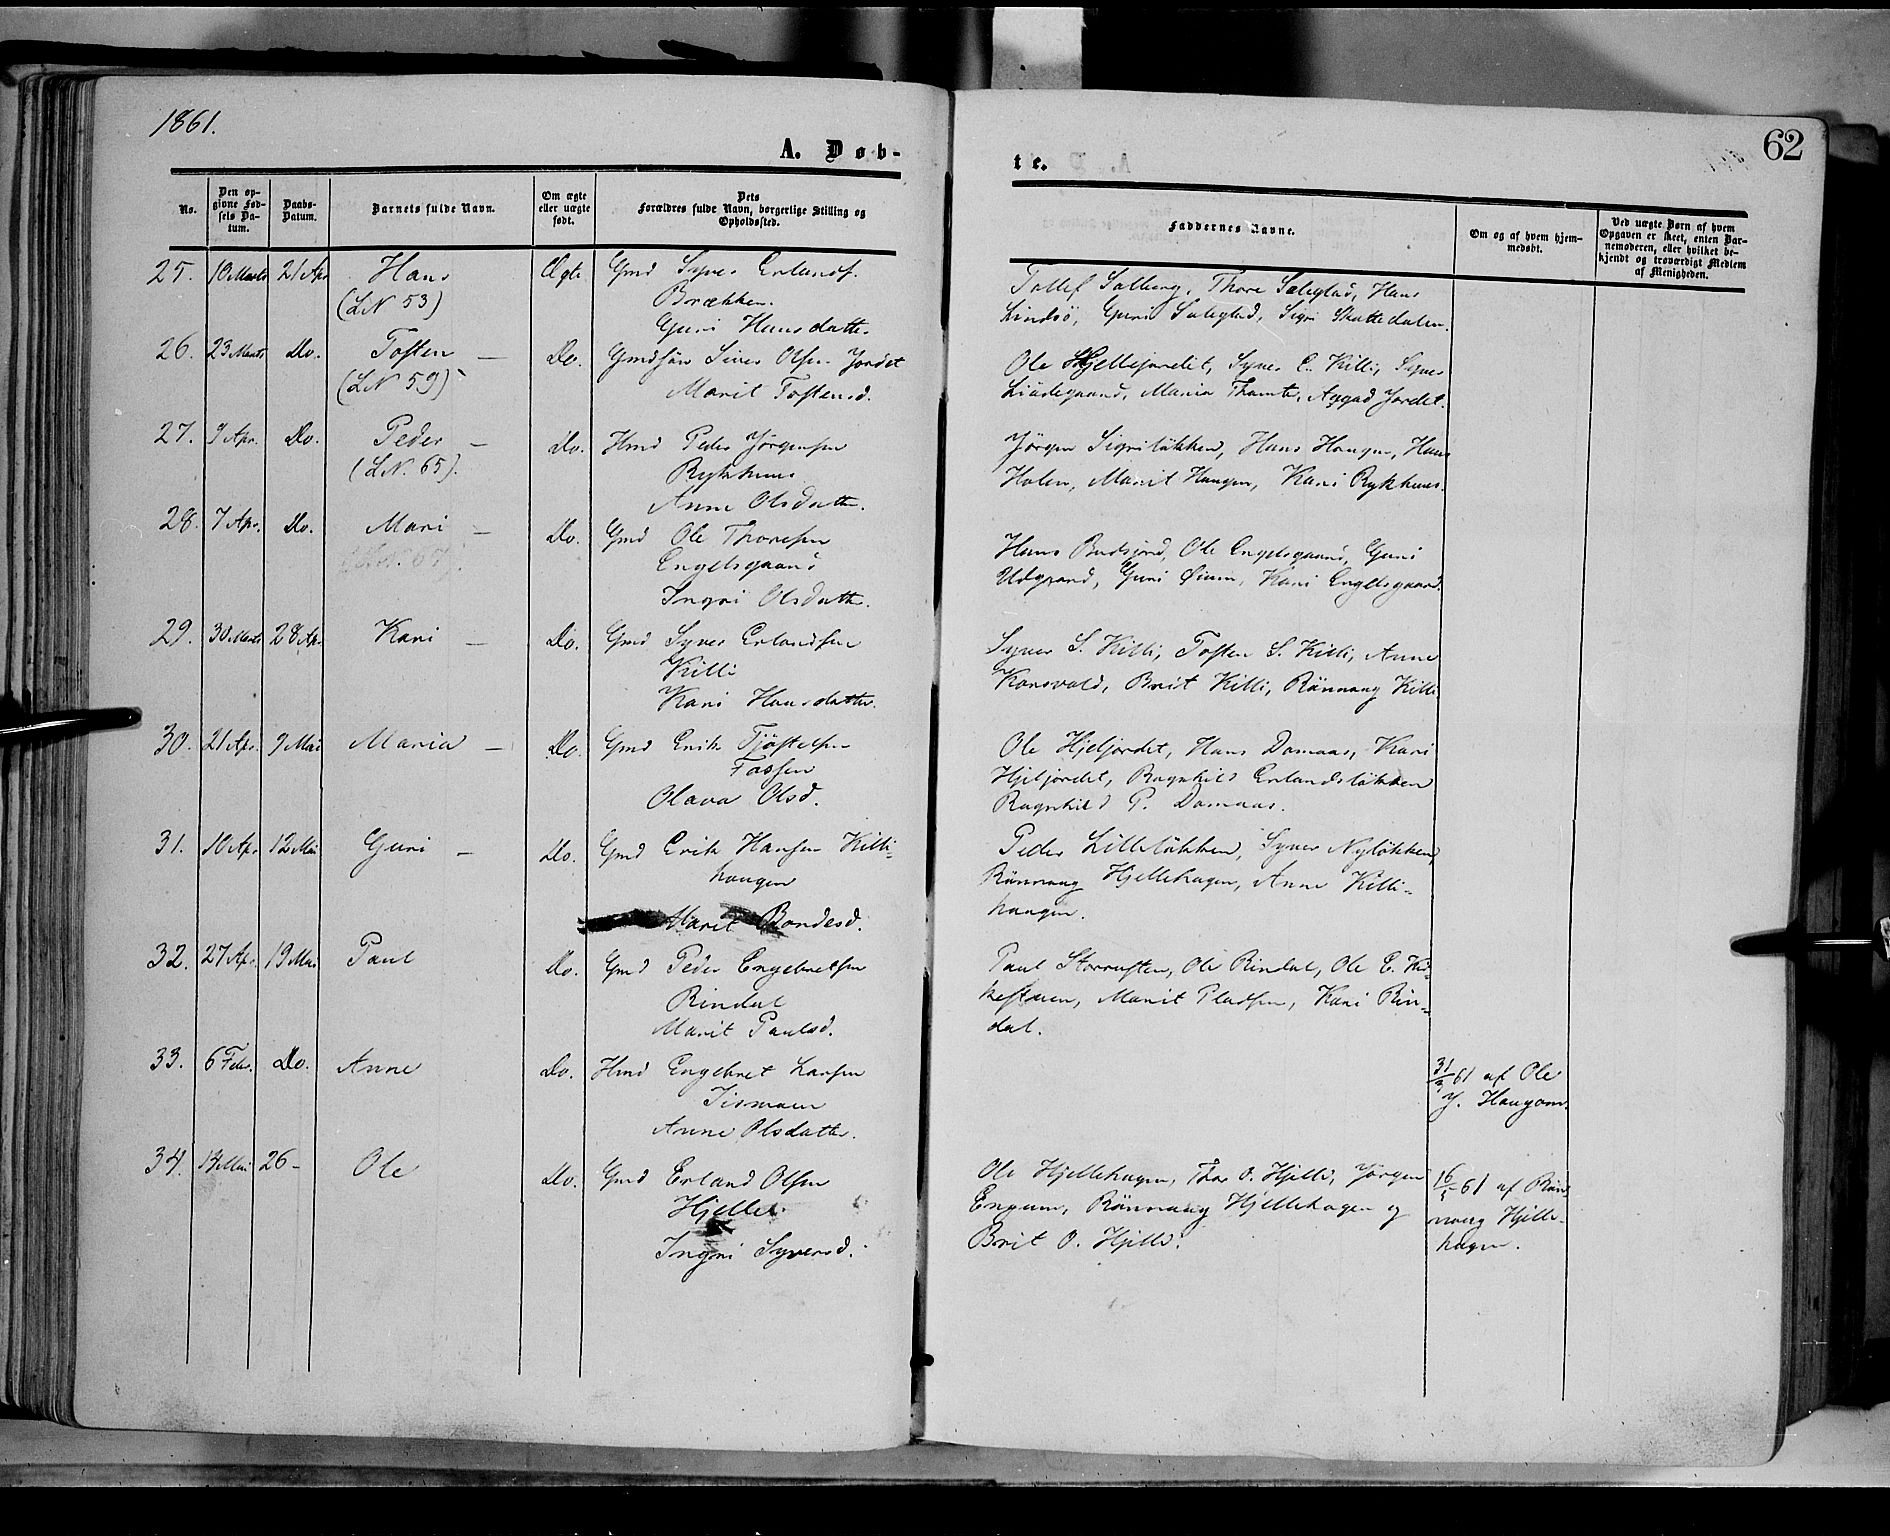 1861.
A. Døb-
te.
62
No.
Den op-
givne Fød-
sels Da-
tum.
Daabs-
Datum.
Barnets fulde Navn.
Om ægte
eller uægte
født.
Dets
Forældres fulde Navn, borgerlige Stilling og
Opholdssted.
Faddernes Navne.
Om og af hvem hjem-
medøbt.
Ved uægte Børn af hvem
Opgaven er skeet, enten Bar-
nemoderen, eller hvilket be-
kjendt og troværdigt Medlem
af Menigheden.
25. 10 Marts 21 Apr Hans Ægte Gmd Syver Erlands.
(LN 53) Brækken.
Guri Hansdatter.
Tollef Solberg, Thore Selsglad, Hans
Lindsö, Guri Selsglad, Sigri Skottedalen.
26. 23 Marts Do. Tosten — Do. Gmdsön Siver Olsen Jordet
(LN 59) Marit Tostensd.
Ole Hjellejordet, Syver E. Killi, Syver
Liadegaard, Maria Thamte, Aagad Jordet.
27. 9 Apr. Do. Peder — Do. Hmd Peder Jörgensen
(LN. 65). Rykhuus
Anne Olsdatter.
Jörgen Sigrilökken, Hans Haugen, Hans
Holen, Marit Haugen, Kari Rykhuus.
28. 7 Apr. Do. Mari — Do. Gmd Ole Thoresen
(LN. 67). Engelsgaard
Ingri Olsdatter.
Hans Budsjord, Ole Engelsgaard, Guri
Udgaard, Guri Öium, Kari Engelsgaard.
29. 30 Marts 28 Ap. Kari — Do. Gmd Syver Erlandsen
Killi
Kari Hansdatter.
Syver S. Killi, Tosten S. Killi, Anne
Kongsvold, Brit Killi, Rönnaug Killi
30. 21 Apr. 9 Mai Maria — Do. Gmd Erik Tjöstelsen
Fossen
Olava Olsd.
Ole Hjeljordet, Hans Domaas, Kari
Hjeljordet, Ragnhild Erlandslökken
Ragnhild P. Domaas.
31. 10 Apr 12 Mai Guri — Do. Gmd Erik Hansen Killi-
haugen
Marit Bondesd.
Peder Lillelökken, Syver Nylökken,
Rönnaug Hjellehagen, Anne Killi-
haugen.
32. 27 Apr. 19 Mai Paul Do. Gmd Peder Engebretsen
Rindal
Marit Paulsd.
Paul Storrusten, Ole Rindal, Ole E. Kir-
kestuen, Marit Pladsen, Kari Rin-
dal.
33. 6 Febr. Do. Anne Do. Hmd Engebret Larsen
Anne Olsdatter.
31/3 61 af Ole
J. Haugom.
34. 14 Mai 26 - Ole Do. Gmd Erland Olsen
Hjelle.
Ingri Syversd.
Ole Hjellehagen, Thor O. Hjelle, Jörgen
Engum, Rönnaug Hjellehagen og
Brit O. Hjelle.
16/5 61 af Rön-
naug Hjelle-
hagen.